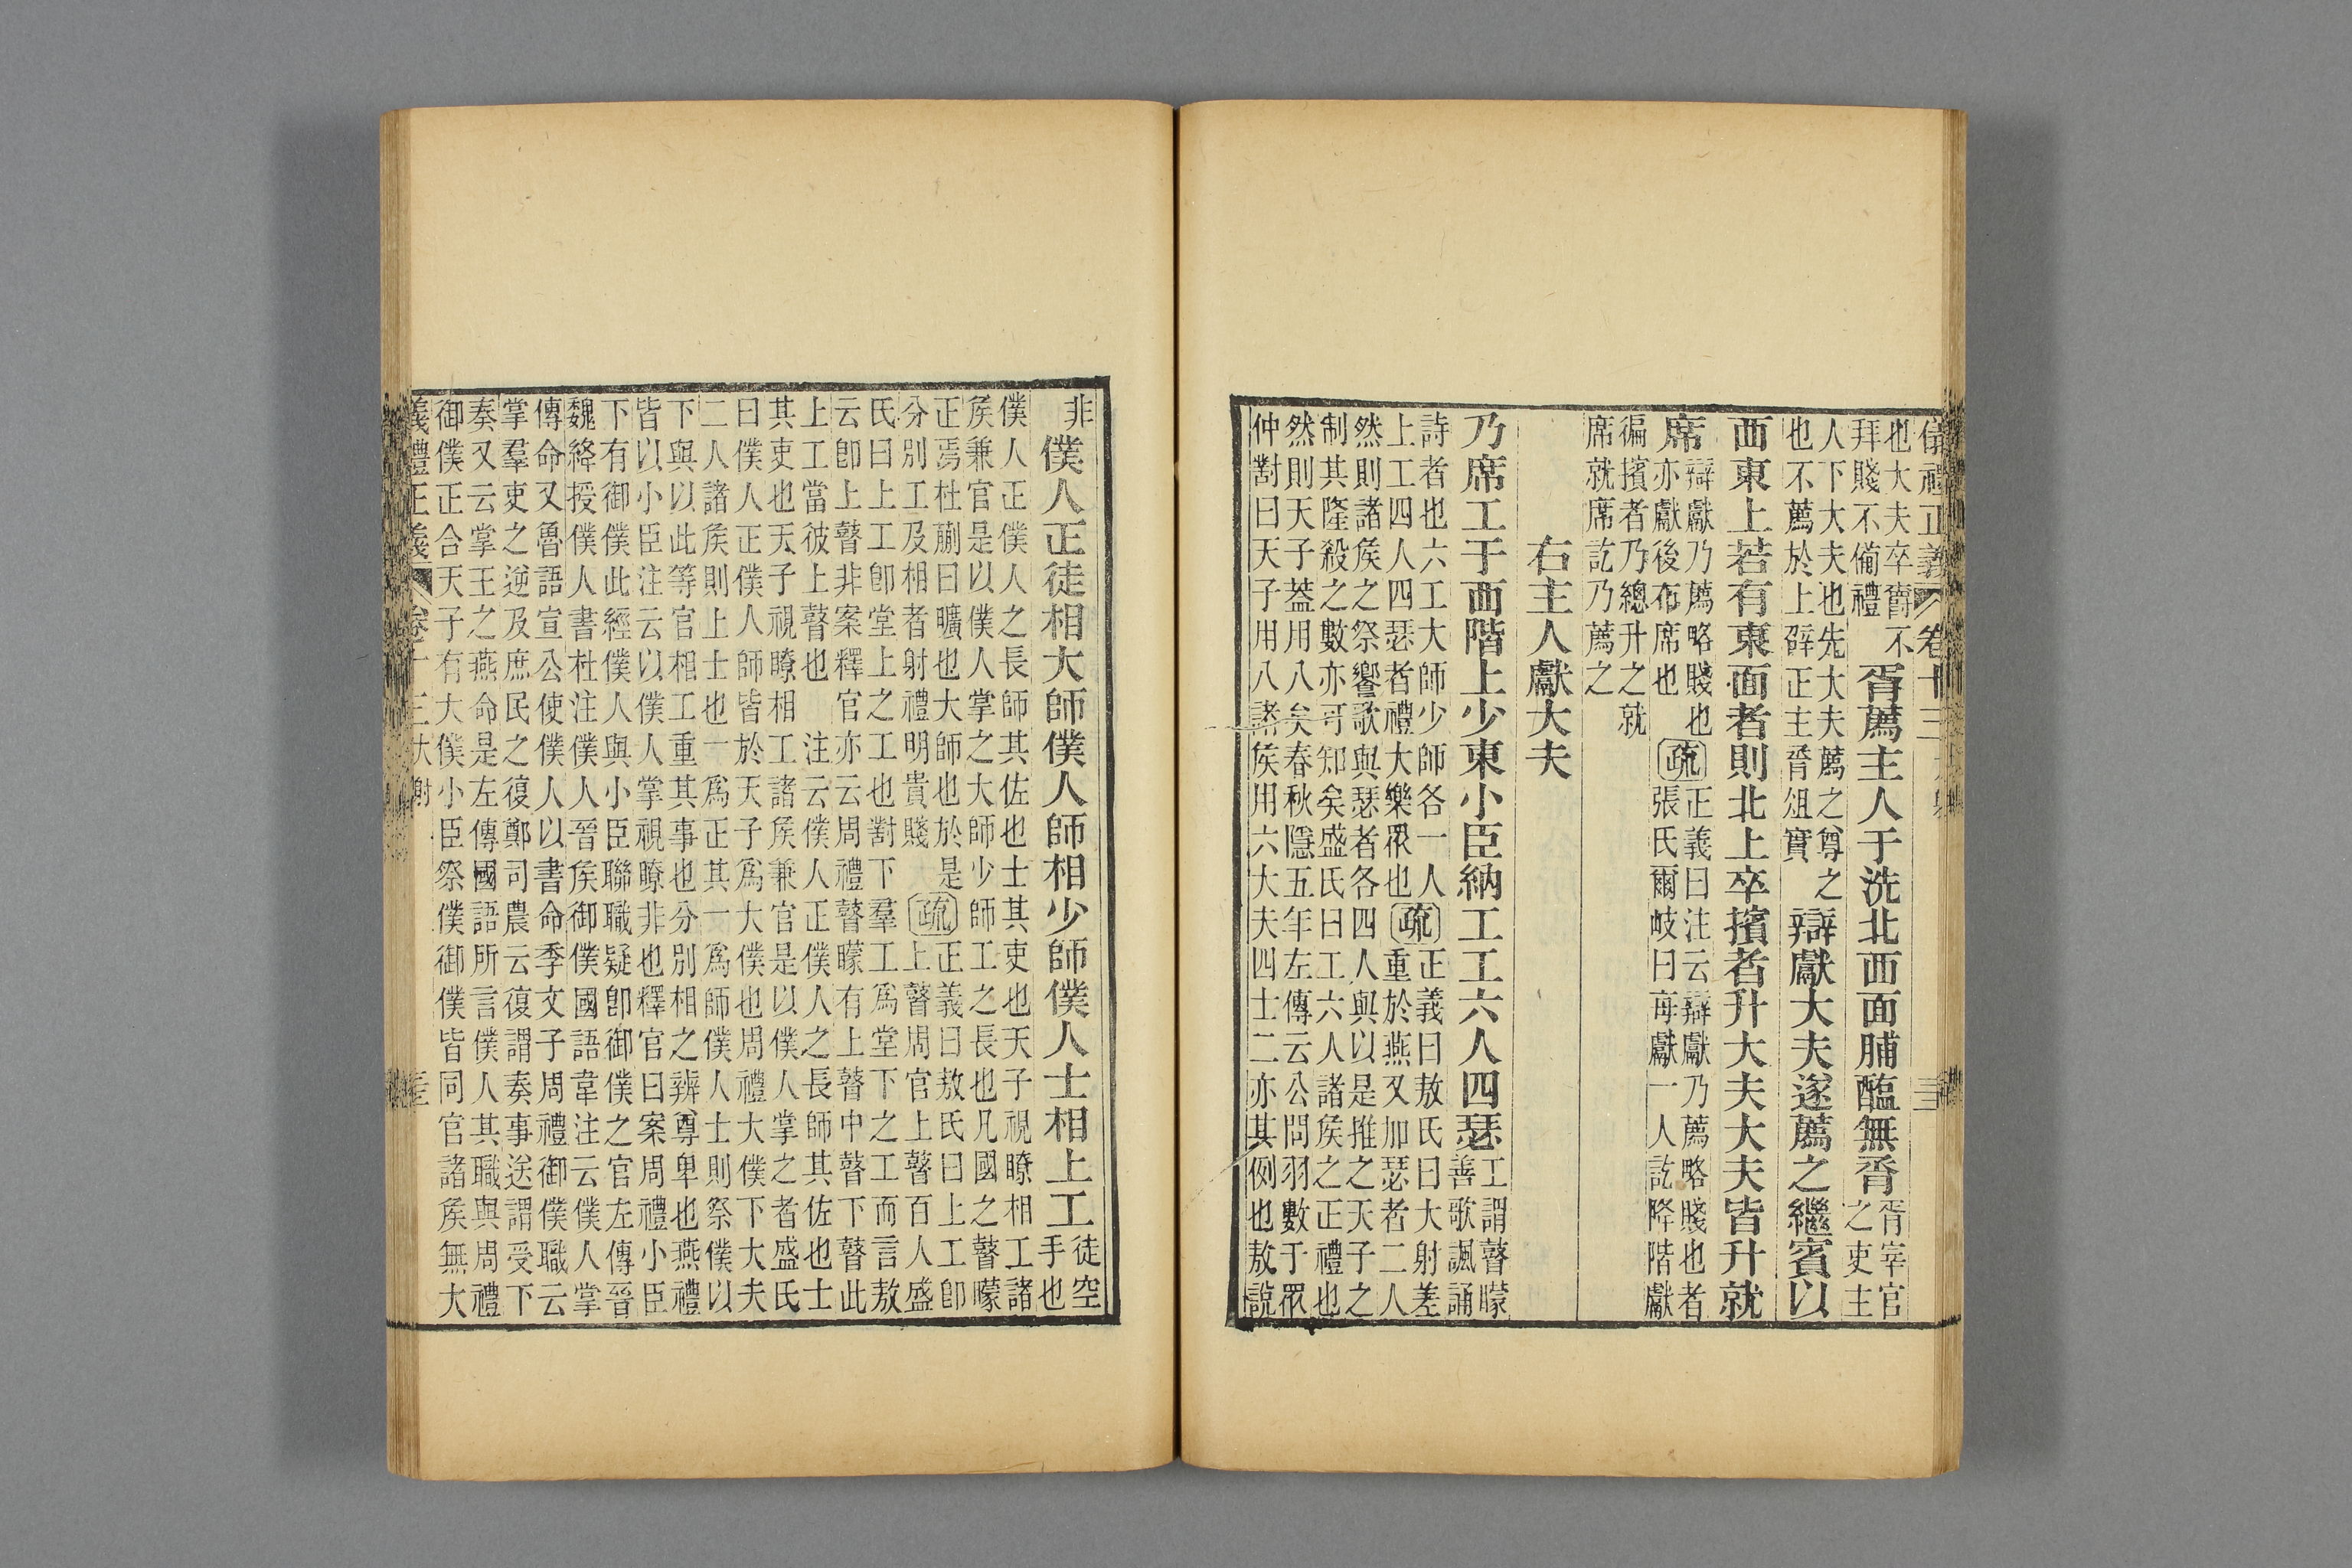 儀禮正義 卷十三 大射
也大夫卒爵不
拜賤不備禮
胥薦主人于洗北西面脯醢無脀
胥宰官
之吏主
人下大夫也先大夫薦之尊之
也不薦於上辟正主脀俎實
辯獻大夫遂薦之繼賓以
西東上若有東面者則北上卒擯者升大夫大夫皆升就
席
辯獻乃薦略賤也
亦獻後布席也
疏
正義曰注云辯獻乃薦略賤也者
張氏爾岐曰每獻一人訖降階獻
徧擯者乃總升之就
席就席訖乃薦之
右主人獻大夫
乃席工于西階上少東小臣納工工六人四瑟
工謂瞽矇
善歌諷誦
詩者也六工大師少師各一人
上工四人四瑟者禮大樂眾也
疏
正義曰敖氏曰大射差
重於燕又加瑟者二人
然則諸侯之祭饗歌與瑟者各四人與以是推之天子之
制其隆殺之數亦可知矣盛氏曰工六人諸侯之正禮也
然則天子葢用八矣春秋隱五年左傳云公問羽數于眾
仲對曰天子用八諸侯用六大夫四士二亦其例也敖說
非
僕人正徒相大師僕人師相少師僕人士相上工
徒空
手也
僕人正僕人之長師其佐也士其吏也天子視瞭相工諸
侯兼官是以僕人掌之大師少師工之長也凡國之瞽矇
正焉杜蒯曰曠也大師也於是
分別工及相者射禮明貴賤
疏
正義曰敖氏曰上工卽
上瞽周官上瞽百人盛
氏曰上工卽堂上之工也對下羣工爲堂下之工而言敖
云卽上瞽非案釋官亦云周禮瞽矇有上瞽中瞽下瞽此
上工當彼上瞽也 注云僕人正僕人之長師其佐也士
其吏也天子視瞭相工諸侯兼官是以僕人掌之者盛氏
曰僕人正僕人師皆於天子爲大僕也周禮大僕下大夫
二人諸侯則上士也一爲正其一爲師僕人士則祭僕以
下與以此等官相工重其事也分別相之辨尊卑也燕禮
皆以小臣注云以僕人掌視瞭非也釋官曰案周禮小臣
下有御僕此經僕人與小臣聯職疑卽御僕之官左傳晉
魏絳授僕人書杜注僕人晉侯御僕國語韋注云僕人掌
傳命又魯語宣公使僕人以書命季文子周禮御僕職云
掌羣吏之逆及庶民之復鄭司農云復謂奏事送謂受下
奏又云掌王之燕命是左傳國語所言僕人其職與周禮
御僕正合天子有大僕小臣祭僕御僕皆同官諸侯無大
義禮正義 卷十三 大射